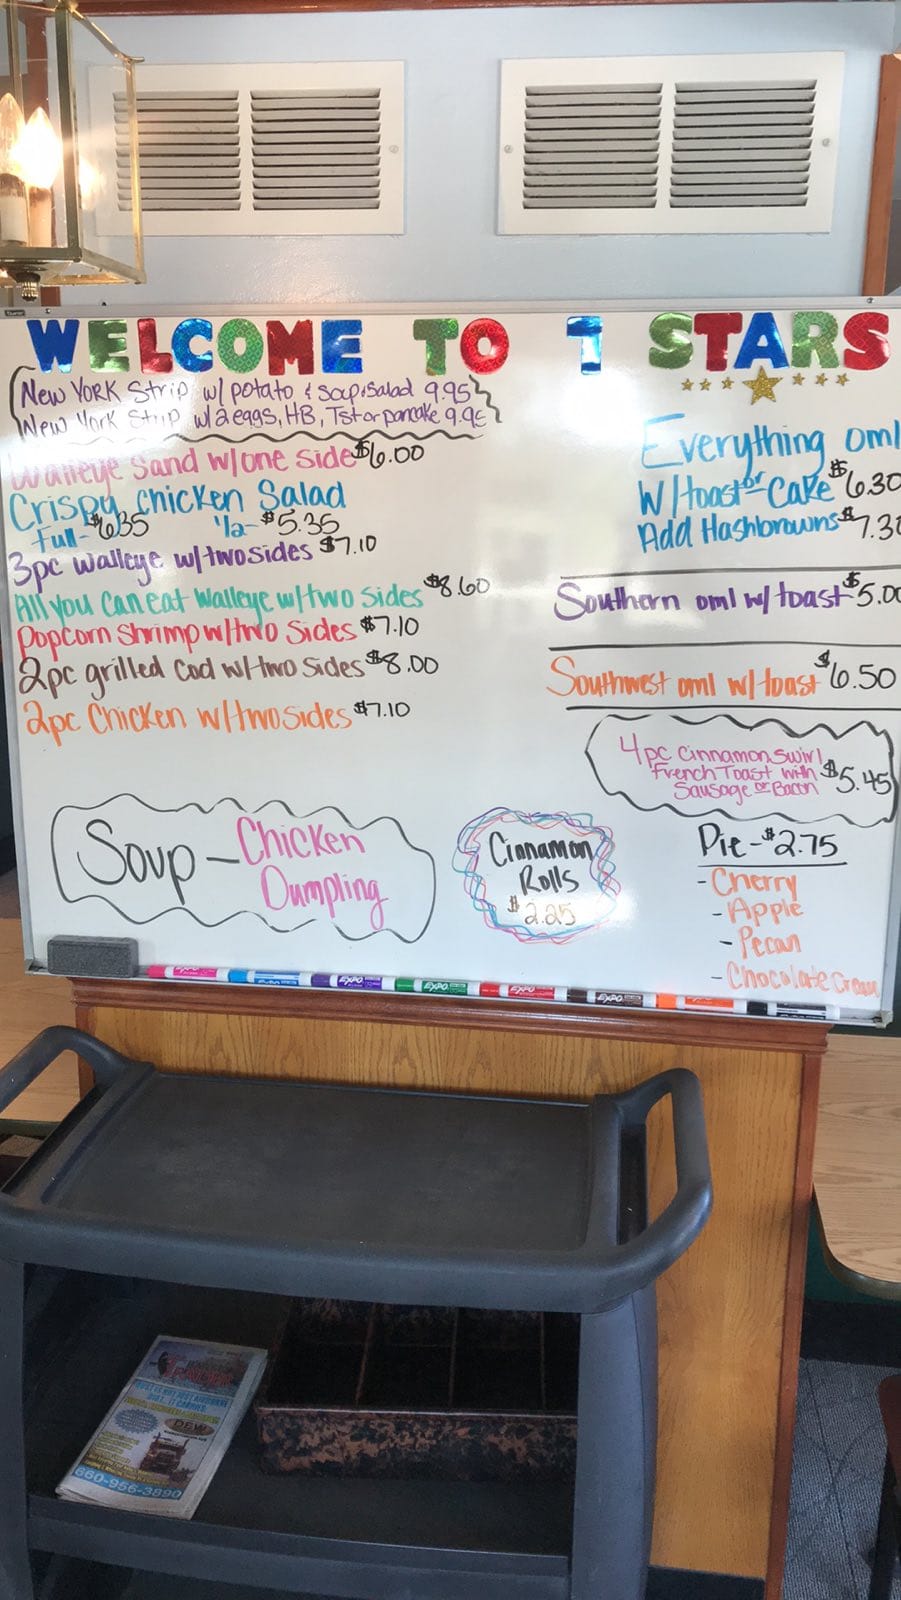 WELCOME TO 7 STARS
New YORK Strip w/ potato & soup+salad 9.95
New York Strip w/2 eggs, HB, Tst or pancake 9.95
Walleye Sand w/one side $6.00
Crispy Chicken Salad
Full- $6.35 1/2- $5.35
3pc walleye w/two sides $7.10
All you can eat walleye w/two sides $8.60
Popcorn Shrimp w/two Sides $7.10
2pc grilled Cod w/two Sides $8.00
2pc Chicken w/two sides $7.10
Soup - Chicken
Dumpling
Cinnamon
Rolls
$2.25
Everything oml
W/toast or Cake $6.30
Add Hashbrowns $7.30
Southern oml w/ toast $5.00
Southwest oml w/toast $6.50
4pc Cinnamon Swirl
French Toast with
Sausage or Bacon $5.45
Pie - $2.75
- Cherry
- Apple
- Pecan
- Chocolate Cream
EXPO
EXPO
EXPO
EXPO
EXPO
DEW
660-956-3890